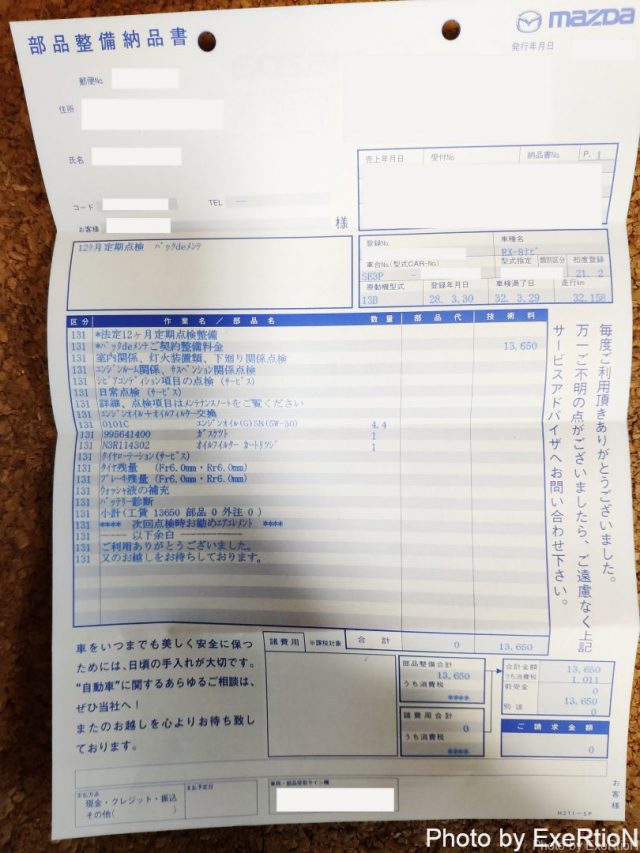 部品整備納品書
mazDa
発行年月日
郵便No.
住所
氏名
コード
TEL
お客様
様
売上年月日 受付No. 納品書No. P. 1
12ヶ月定期点検 パックdeメンテ
登録No. 車種名
RX-8ナビ
車台No.(型式CAR-No.) 型式指定 類別区分 初度登録
SE3P- 21. 2
原動機型式 登録年月日 車検満了日 走行km
13B 28. 3.30 32. 3.29 32,158
区分 作業名/部品名 数量 部品代 技術料
131 *法定12ヶ月定期点検整備
131 *パックdeメンテご契約整備料金 13,650
131 室内関係、灯火装置類、下廻り関係点検
131 エンジンルーム関係、サスペンション関係点検
131 シビアコンディション項目の点検 (サービス)
131 日常点検 (サービス)
131 詳細、点検項目はメンテナンスノートをご覧ください
131 エンジンオイル+オイルフィルター交換
131 0101C エンジンオイル(G)SN(5W-30) 4.4
131 995641400 ガスケツト 1
131 N3R114302 オイルフイルター カートリツジ 1
131 タイヤローテーション(サービス)
131 タイヤ残量 (Fr6.0mm・Rr6.0mm)
131 ブレーキ残量 (Fr6.0mm・Rr6.0mm)
131 ウォッシャ液の補充
131 バッテリー診断
131 小計(工賃 13650 部品 0 外注 0 )
131 **** 次回点検時お勧めエアエレメント ****
131 以下余白
131 ご利用ありがとうございました。
131 又のお越しをお待ちしております。
毎度ご利用頂きありがとうございました。
万一ご不明の点がございましたら、ご遠慮なく上記
サービスアドバイザへお問い合わせ下さい。
諸費用 ※課税対象 合計 0 13,650
車をいつまでも美しく安全に保つ
ためには、日頃の手入れが大切です。
“自動車”に関するあらゆるご相談は、
ぜひ当社へ!
またのお越しを心よりお待ち致し
ております。
部品整備合計
13,650
うち消費税
****
諸費用合計
0
うち消費税
****
合計金額 13,650
うち消費税 1,011
前受金 0
13,650
別途 0
ご請求金額
0
支払方法
現金・クレジット・振込
その他( )
支払予定日
車両・部品受取サイン欄
お客様
N211-SP
Photo by ExeRtioN
Photo by ExeRtioN